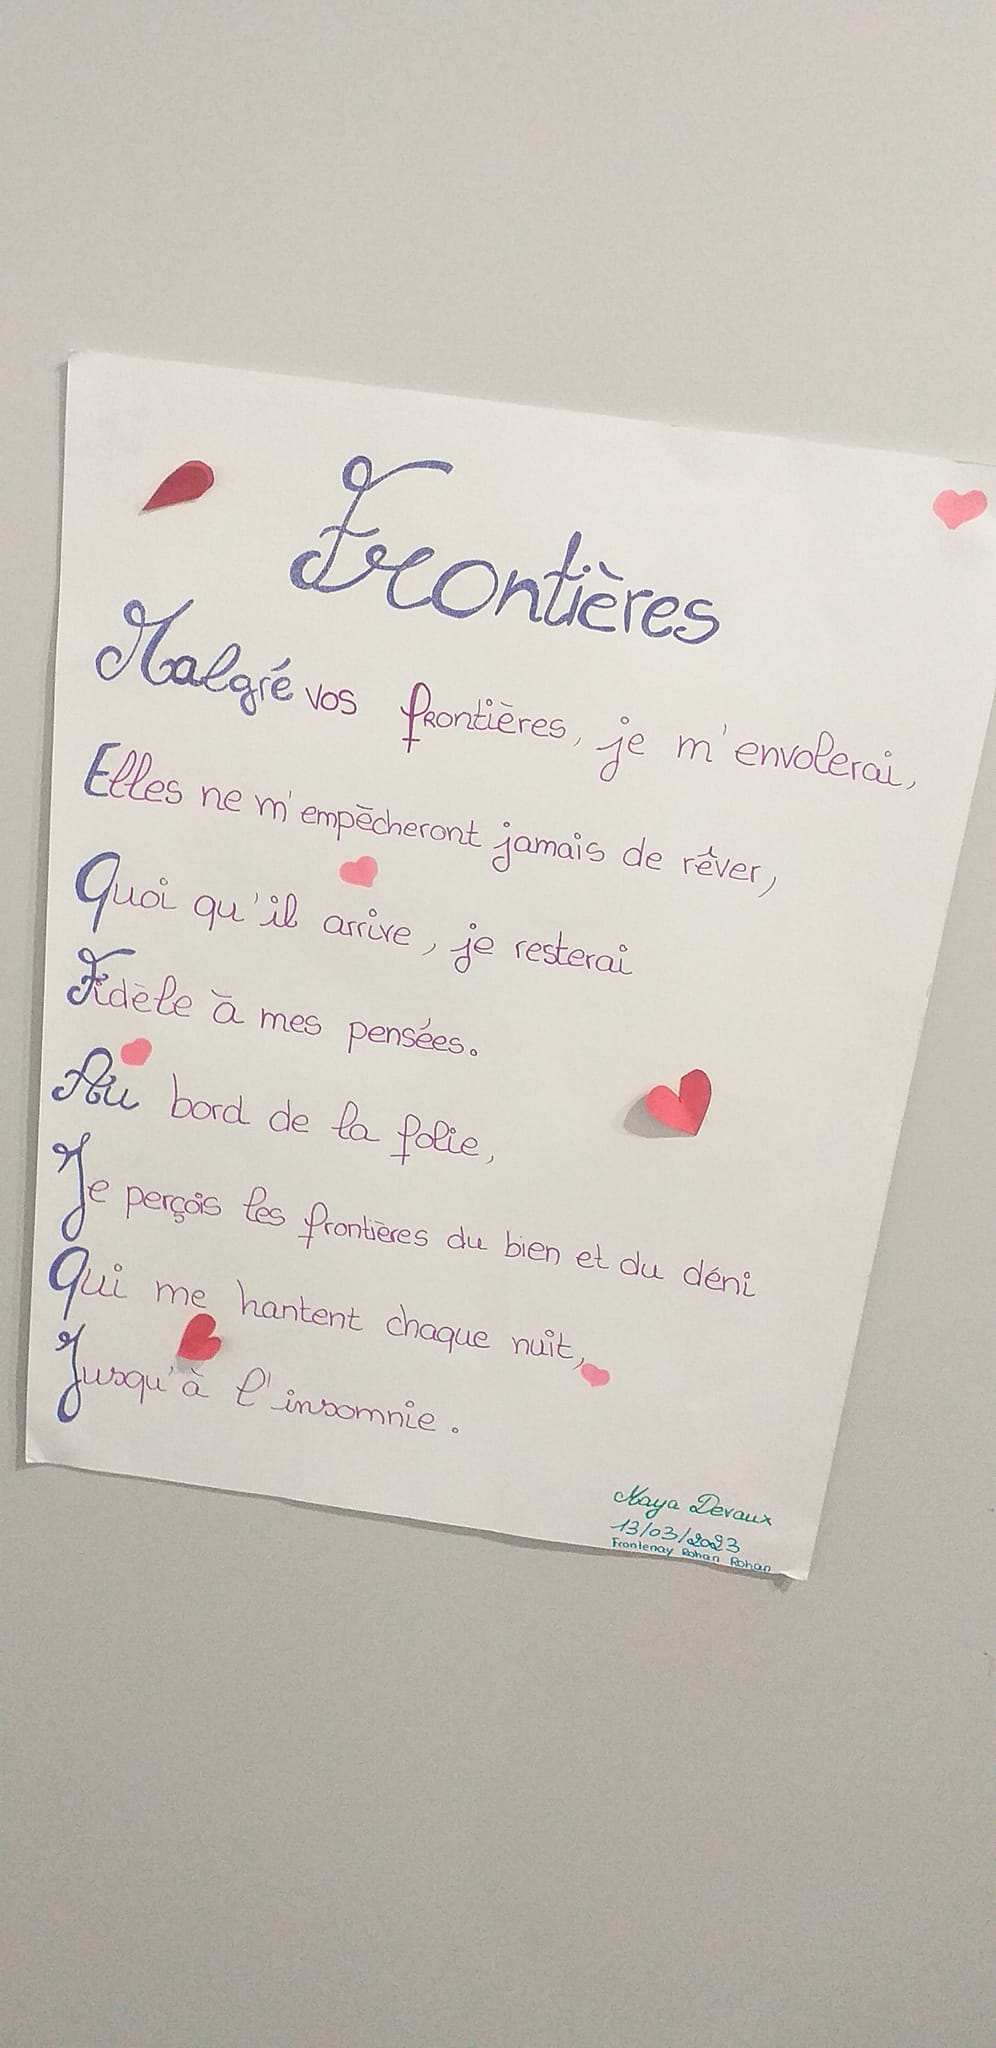 Frontières
Malgré vos frontières, je m'envolerai,
Elles ne m'empêcheront jamais de rêver,
Quoi qu'il arrive, je resterai
Fidèle à mes pensées.
Au bord de la folie,
Je perçois les frontières du bien et du déni
Qui me hantent chaque nuit,
Jusqu'à l'insomnie.
Maya Devaux
13/03/2023
Frontenay Rohan Rohan